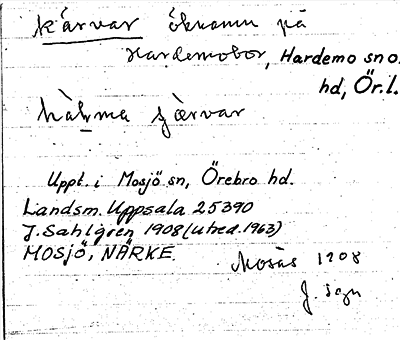 kärvar öknamn på
Hardemobor, Hardemo sno.
hd, Ör.l.
järvar
Uppt. i Mosjö sn, Örebro hd.
Landsm. Uppsala 25390
J. Sahlgren 1908 (utred. 1963)
MOSJÖ, NÄRKE.
Mosås 1908
J. Sgn